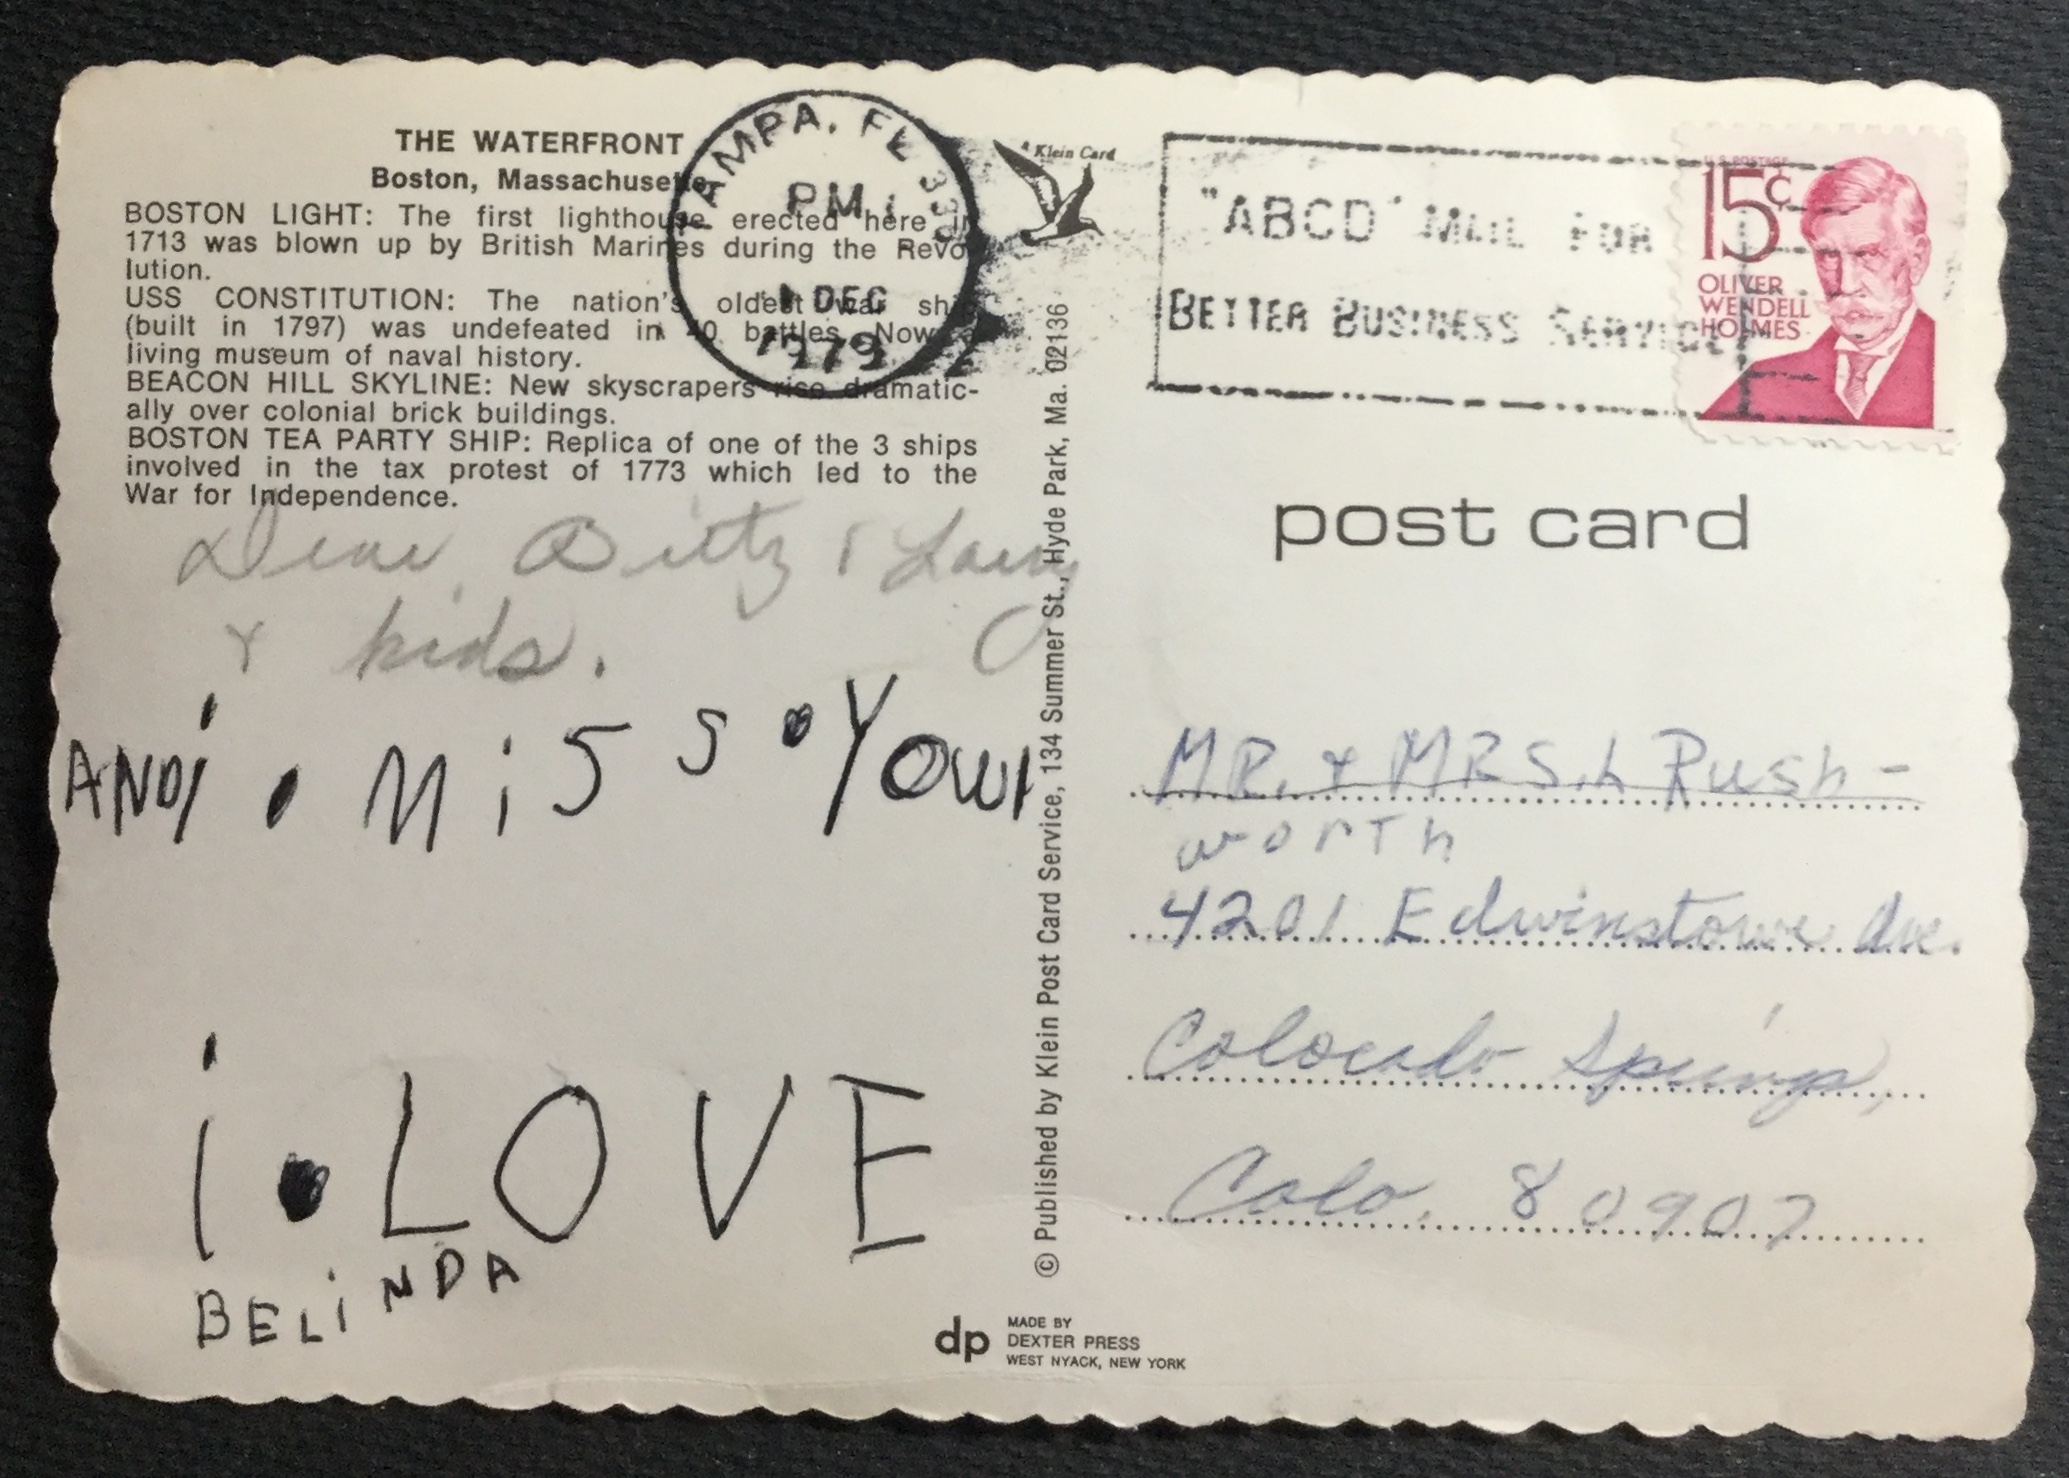 THE WATERFRONT
Boston, Massachusetts
BOSTON LIGHT: The first lighthouse erected here in
1713 was blown up by British Marines during the Revo-
lution.
USS CONSTITUTION: The nation's oldest war ship
(built in 1797) was undefeated in 40 battles. Now a
living museum of naval history.
BEACON HILL SKYLINE: New skyscrapers rise dramatic-
ally over colonial brick buildings.
BOSTON TEA PARTY SHIP: Replica of one of the 3 ships
involved in the tax protest of 1773 which led to the
War for Independence.
TAMPA, FL
PM
1 DEC
1979
A Klein Card
"ABCD" MAIL FOR
BETTER BUSINESS SERVICE
U.S. POSTAGE
15c
OLIVER
WENDELL
HOLMES
post card
Dear Bitty & Larry
& kids.
AND i • MiSS • YOU
i • LOVE
BELiNDA
© Published by Klein Post Card Service, 134 Summer St., Hyde Park, Ma. 02136
MR. & MRS. L Rush-
worth
4201 Edwinstowe Ave.
Colorado Springs,
Colo. 80907
dp
MADE BY
DEXTER PRESS
WEST NYACK, NEW YORK